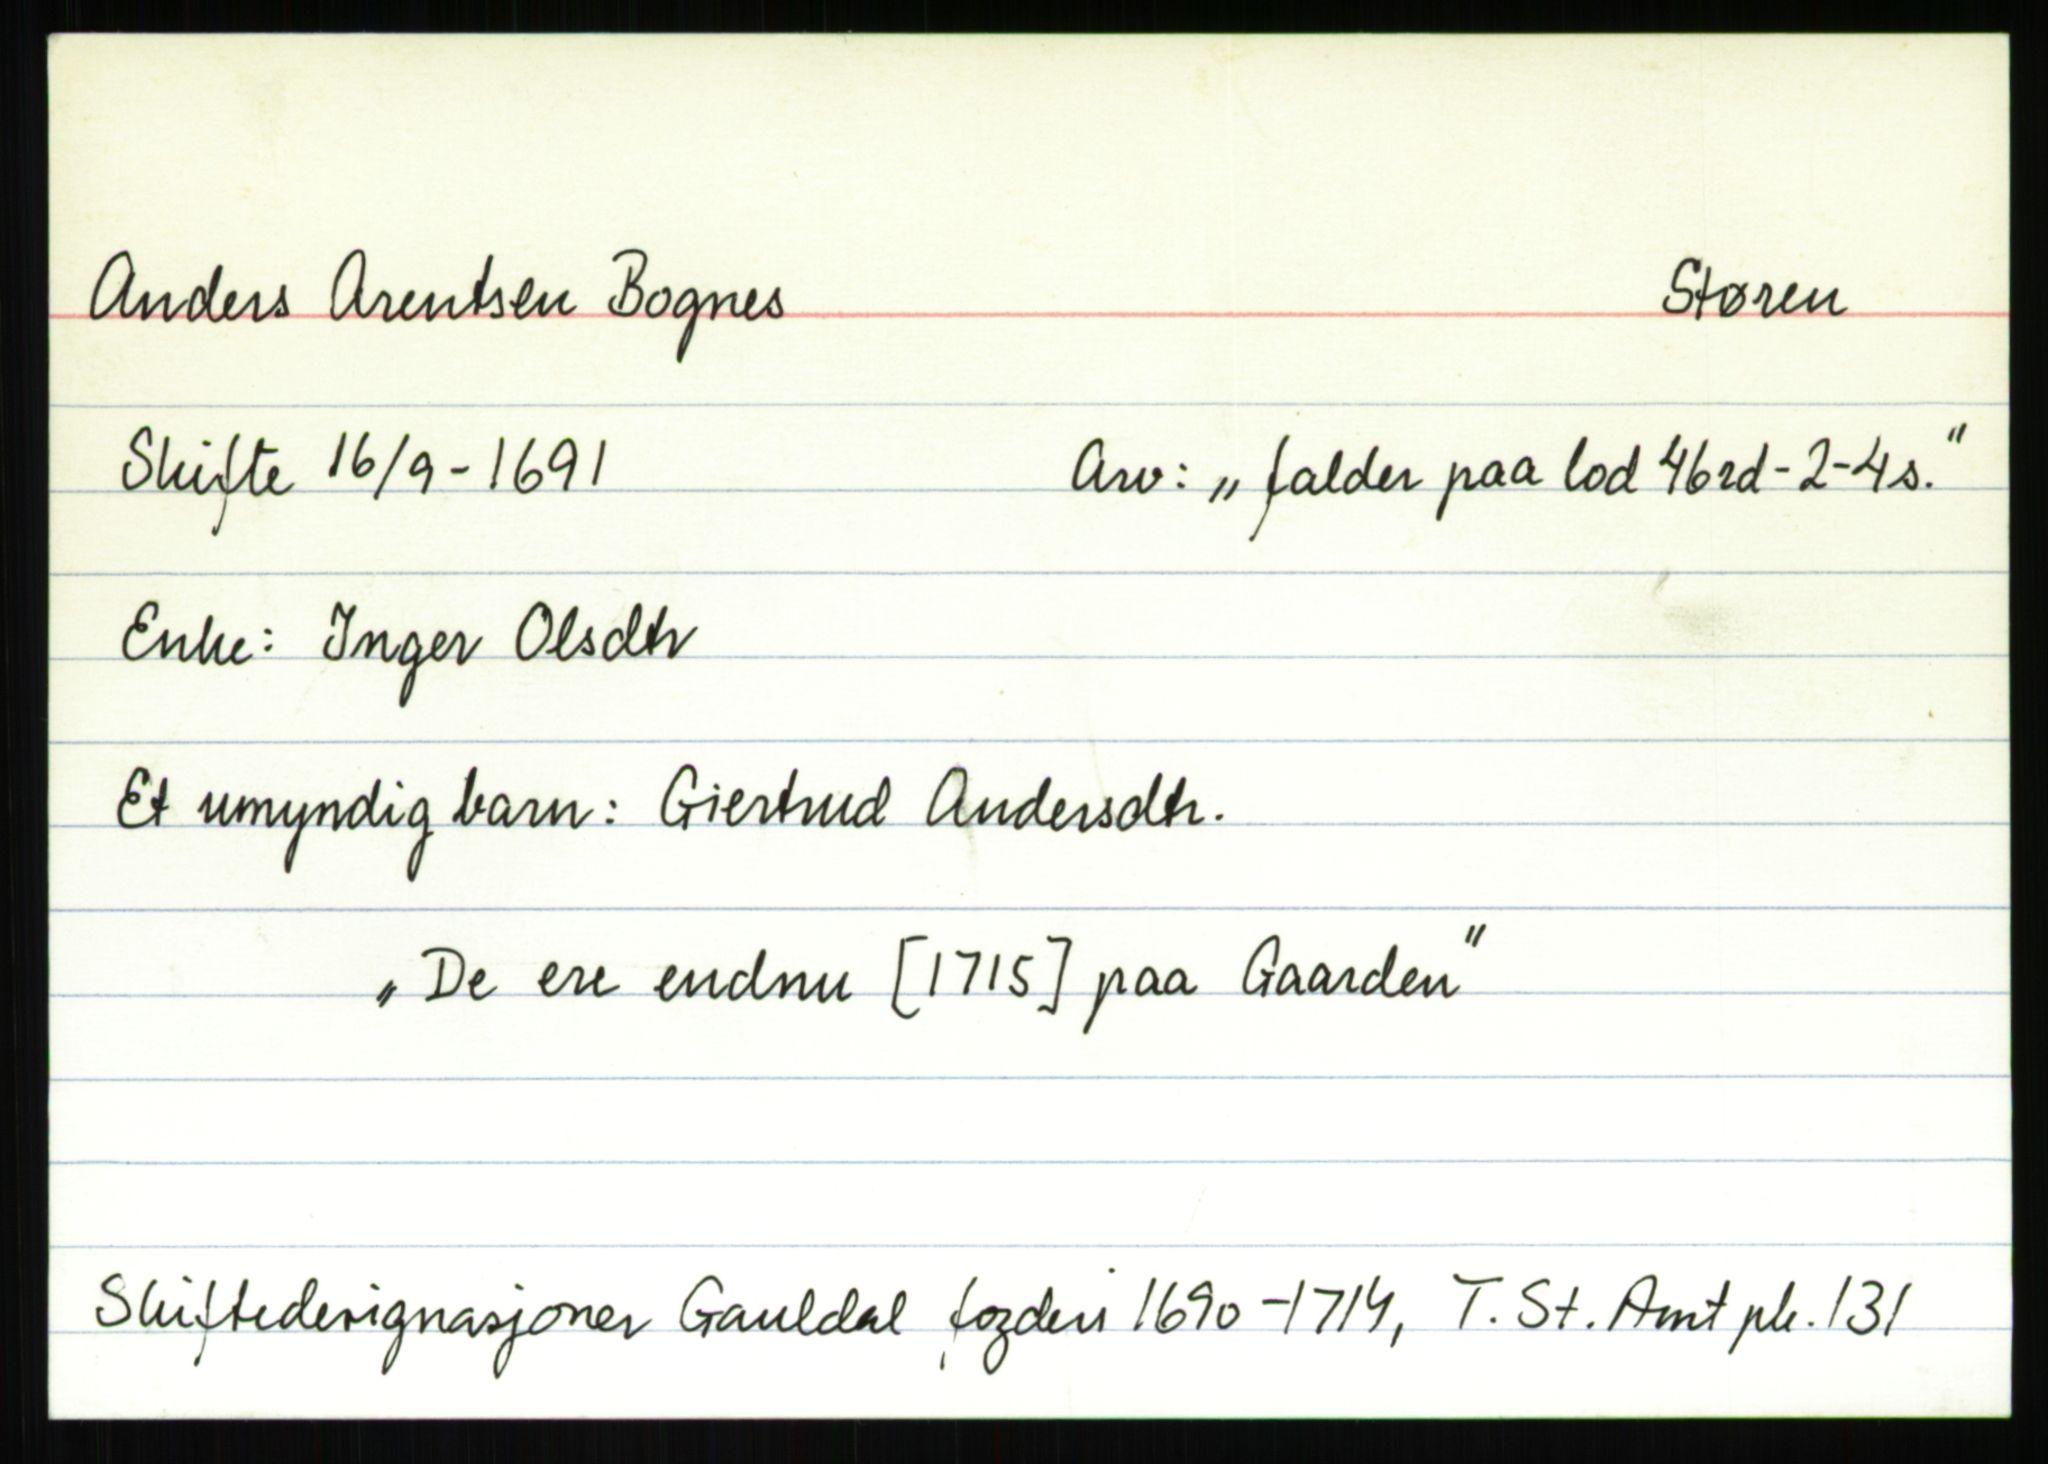 Anders Arentsen Bognes Støren
Skifte 16/9-1691 Arv: „falder paa lod 46rd-2-4s.“
Enke: Inger Olsdtr
Et umyndig barn: Giertrud Andersdtr.
„De ere endnu [1715] paa Gaarden“
Skiftedesignasjoner Gauldal fogderi 1690-1714, T. St. Amt pk. 131